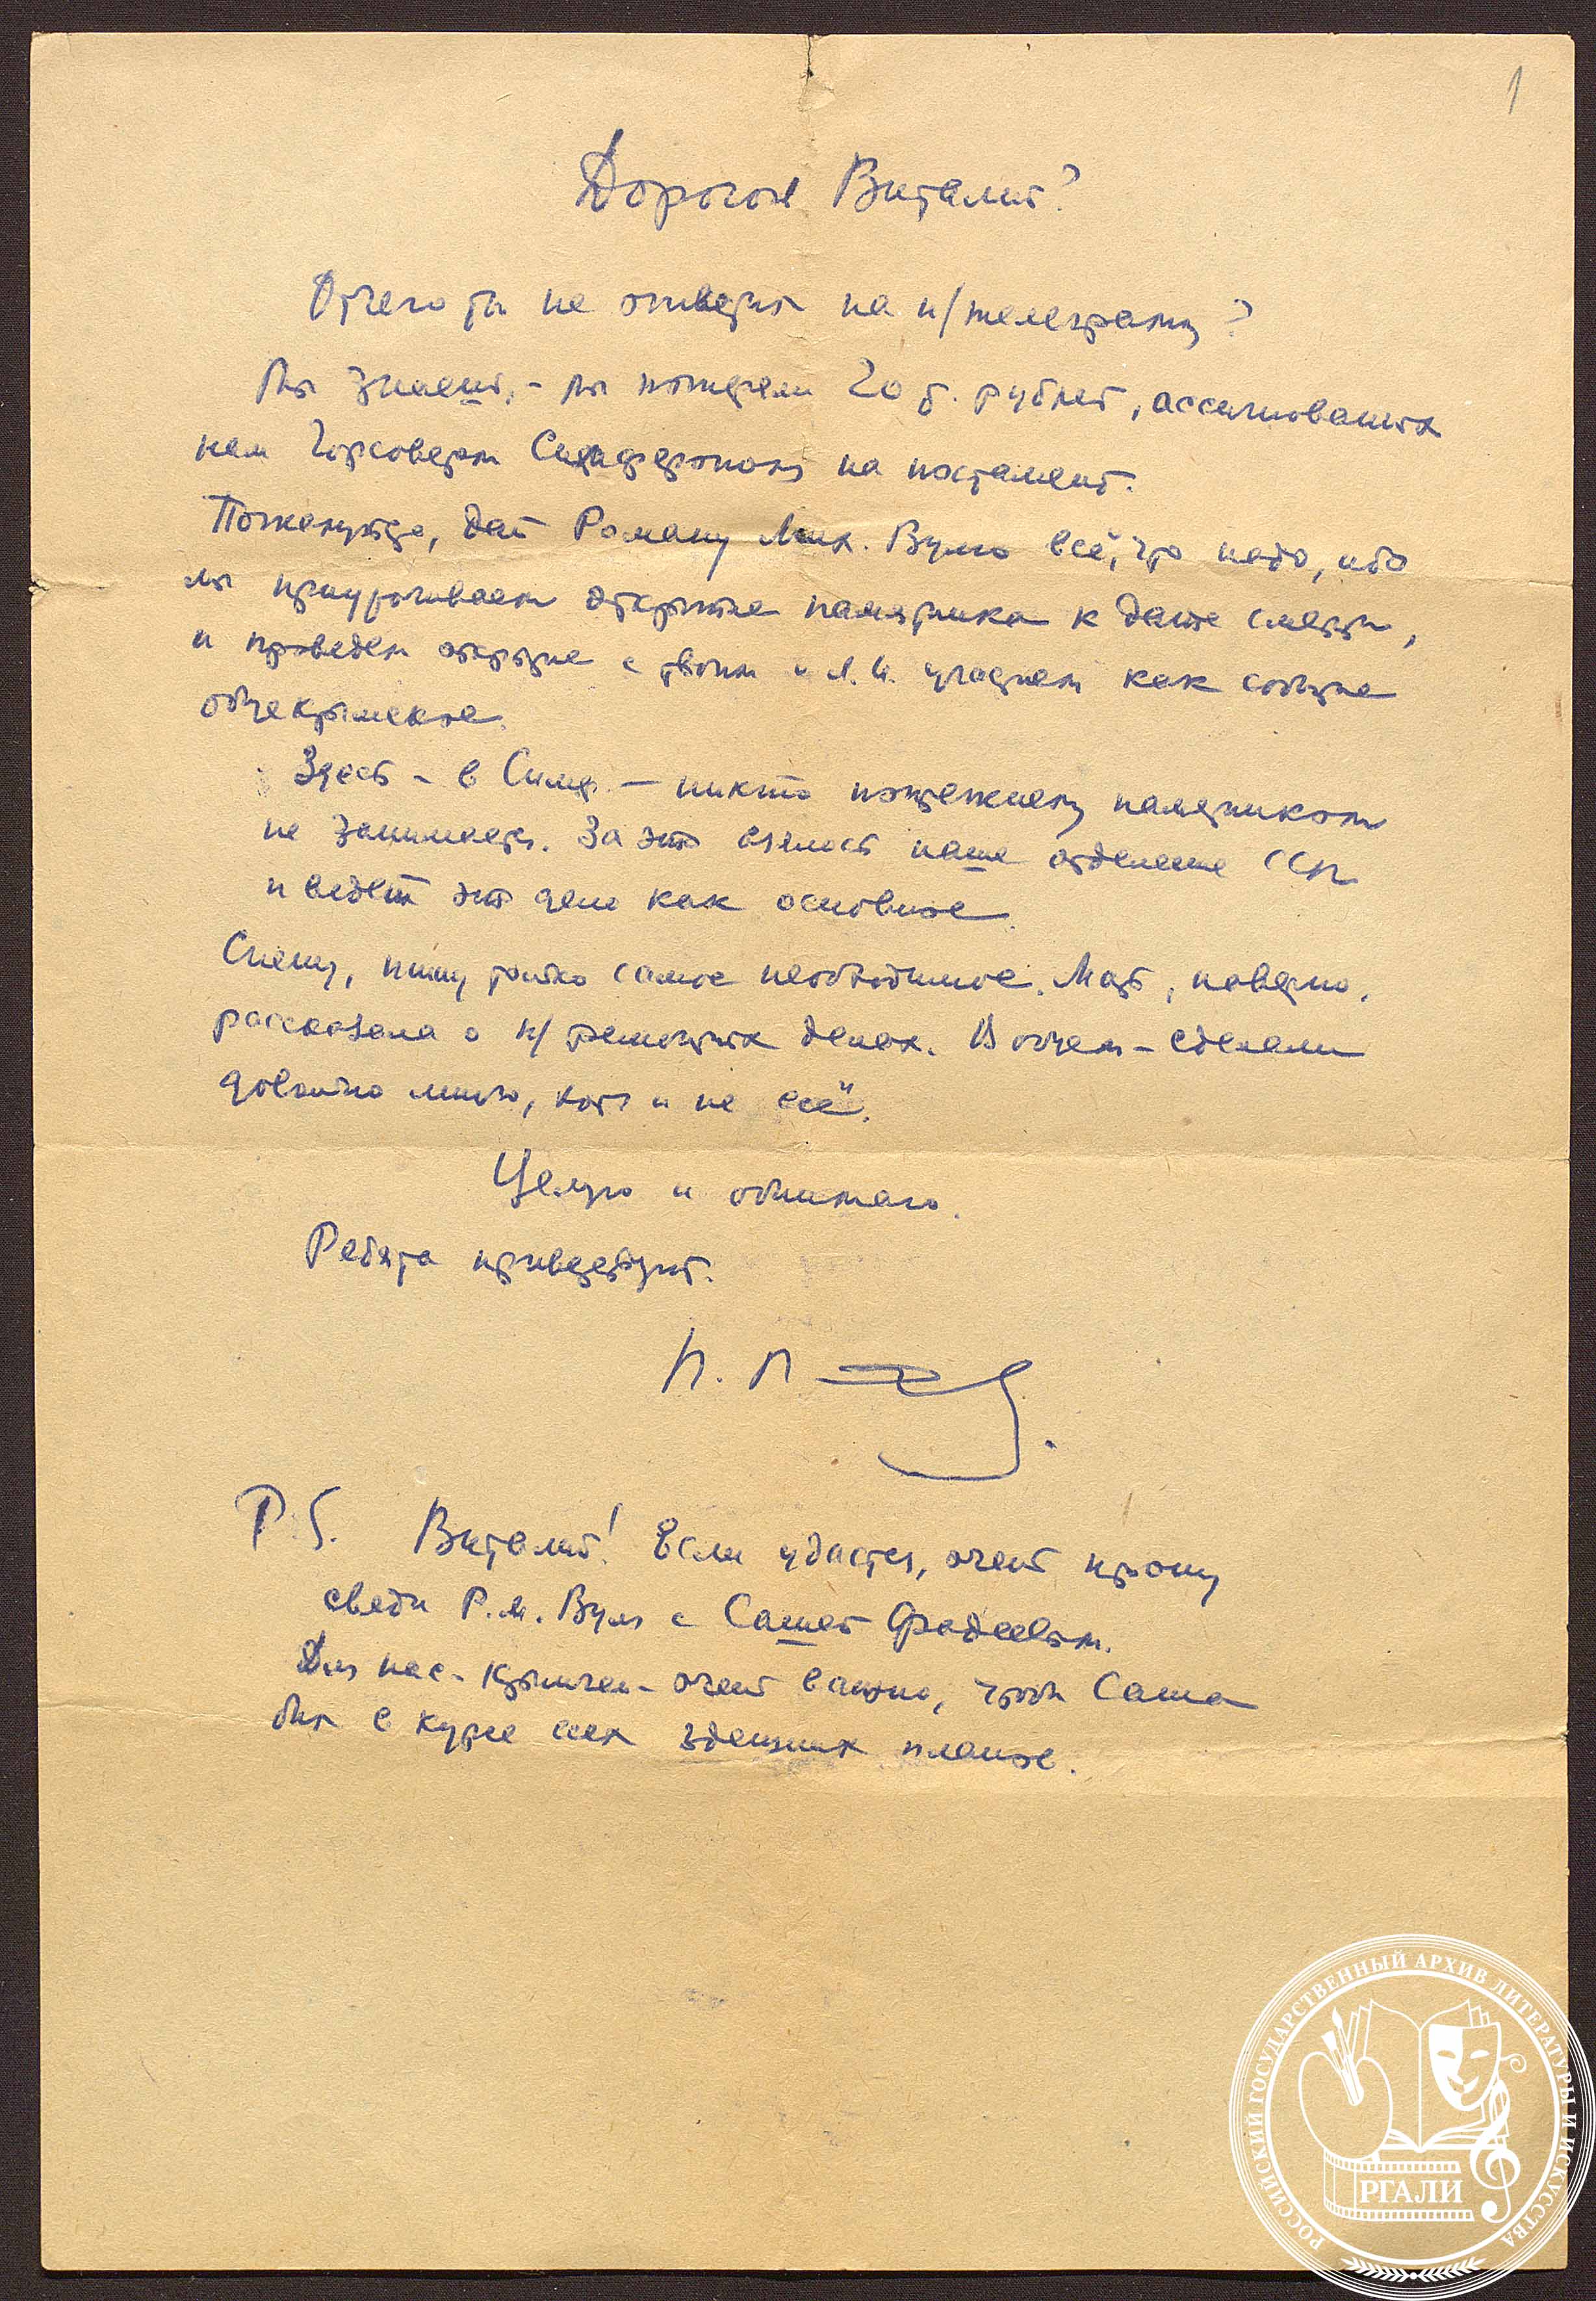 1
Дорогой Виталий!
Отчего ты не ответил на н/телеграмму?
Ты знаешь, – мы потеряли 20 т. рублей, ассигнованных
нам Горсоветом Симферополя на постамент.
Пожалуйста, дай Роману Мих. Вулю всё, что надо, ибо
мы приурочиваем открытие памятника к дате смерти,
и проведем открытие с твоим и Л.И. участием как событие
общекрымское.
Здесь – в Симф. – никто по-прежнему памятником
не занимается. За это взялось наше отделение ССП
и ведет это дело как основное.
Спешу, пишу только самое необходимое. Мать, наверно,
рассказала о н/ ремонтных делах. В общем – сделали
довольно много, хотя и не всё.
Целую и обнимаю.
Ребята приветствуют.
П. П
P.S. Виталий! Если удастся, очень прошу
сведи Р.М. Вуля с Сашей Фадеевым.
Для нас – крымчан – очень важно, чтобы Саша
был в курсе всех здешних планов.
РОССИЙСКИЙ ГОСУДАРСТВЕННЫЙ АРХИВ ЛИТЕРАТУРЫ И ИСКУССТВА
РГАЛИ